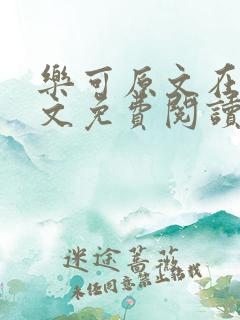 樂可原文在
文免費閱讀
迷途薔薇
未經同意禁止轉載